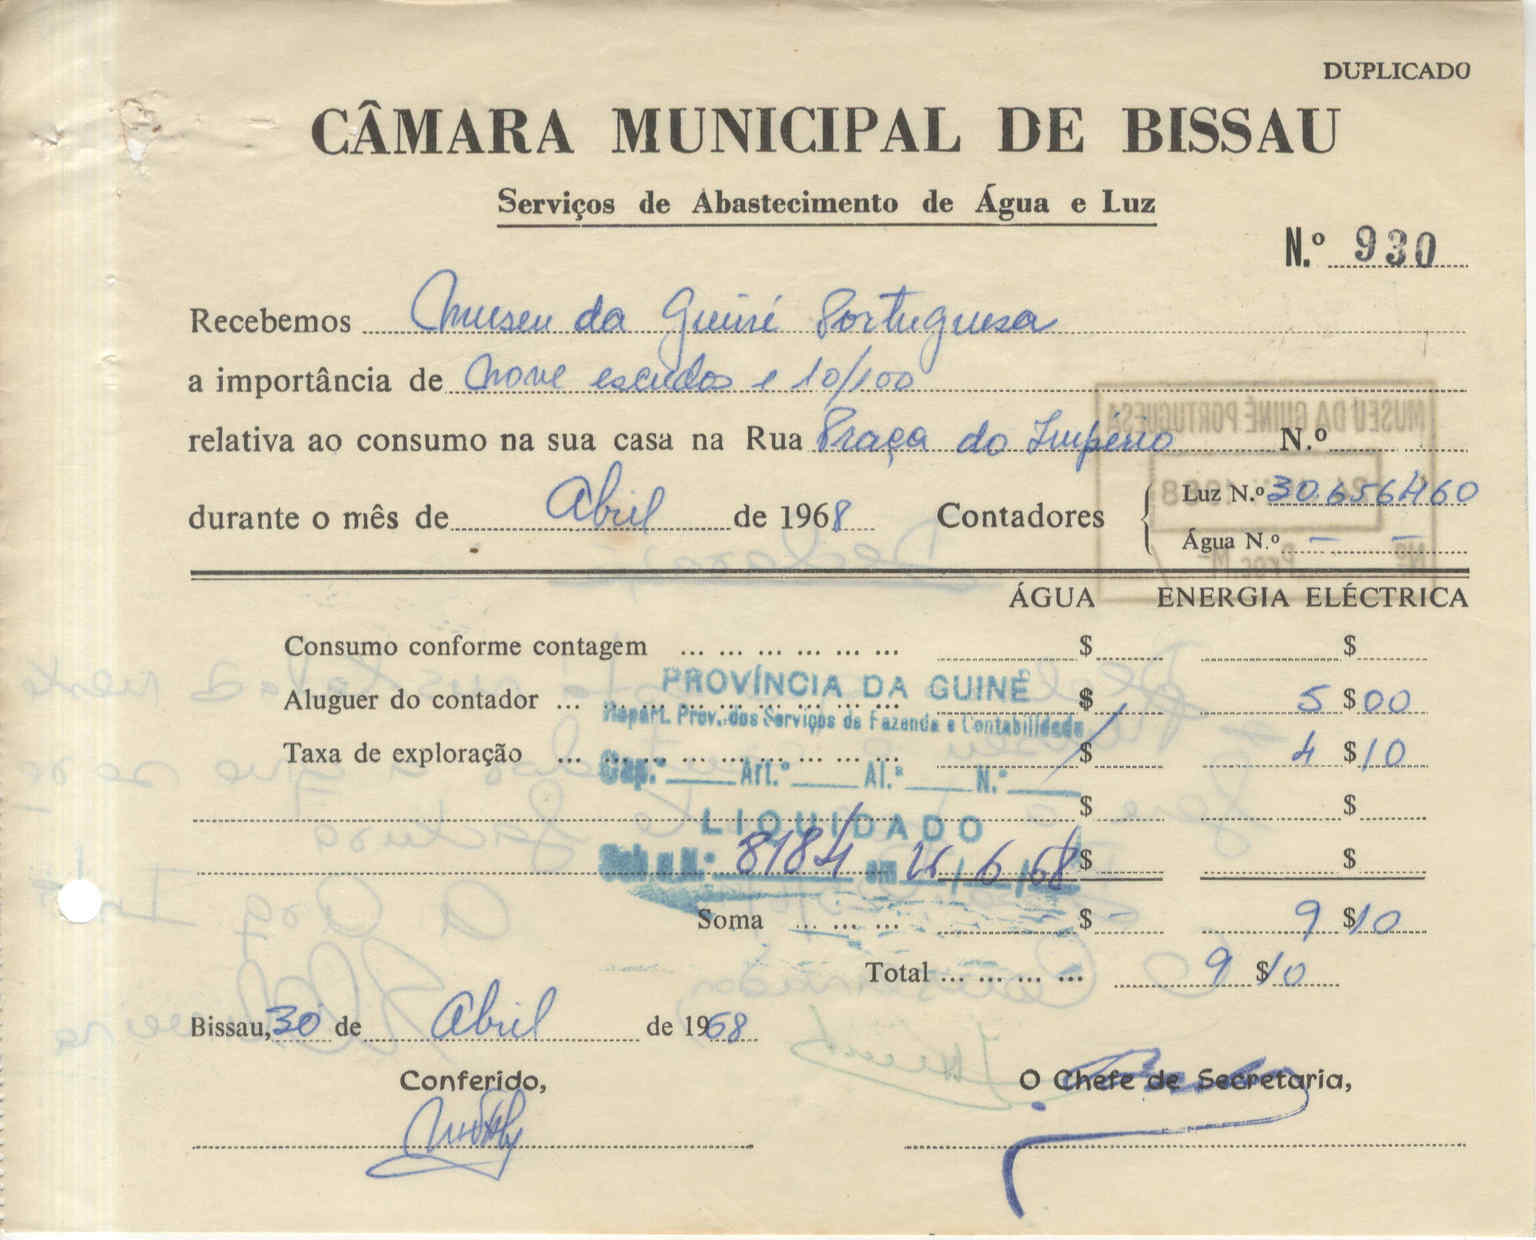 DUPLICADO
CÂMARA MUNICIPAL DE BISSAU
Serviços de Abastecimento de Água e Luz
N.º 930
Recebemos Museu da Guiné Portuguesa
a importância de Nove escudos e 10/100
relativa ao consumo na sua casa na Rua Praça do Império N.º
durante o mês de Abril de 1968 Contadores Luz N.º 30.656460
Água N.º - -
ÁGUA ENERGIA ELÉCTRICA
Consumo conforme contagem ... ... ... ... ... ... $ $
PROVÍNCIA DA GUINÉ
Aluguer do contador ... ... ... ... ... ... ... $ 5 $ 00
Repart. Prov. dos Serviços de Fazenda e Contabilidade
Taxa de exploração ... ... ... ... ... ... ... $ 4 $ 10
Cap.º Art.º Al.ª N.º
$ $
LIQUIDADO
Sob o N.º 8184 em / 6 / 68 $ $
Soma ... ... ... $ - 9 $ 10
Total ... ... ... ... 9 $ 10
Bissau, 30 de Abril de 1968
Conferido,
O Chefe de Secretaria,